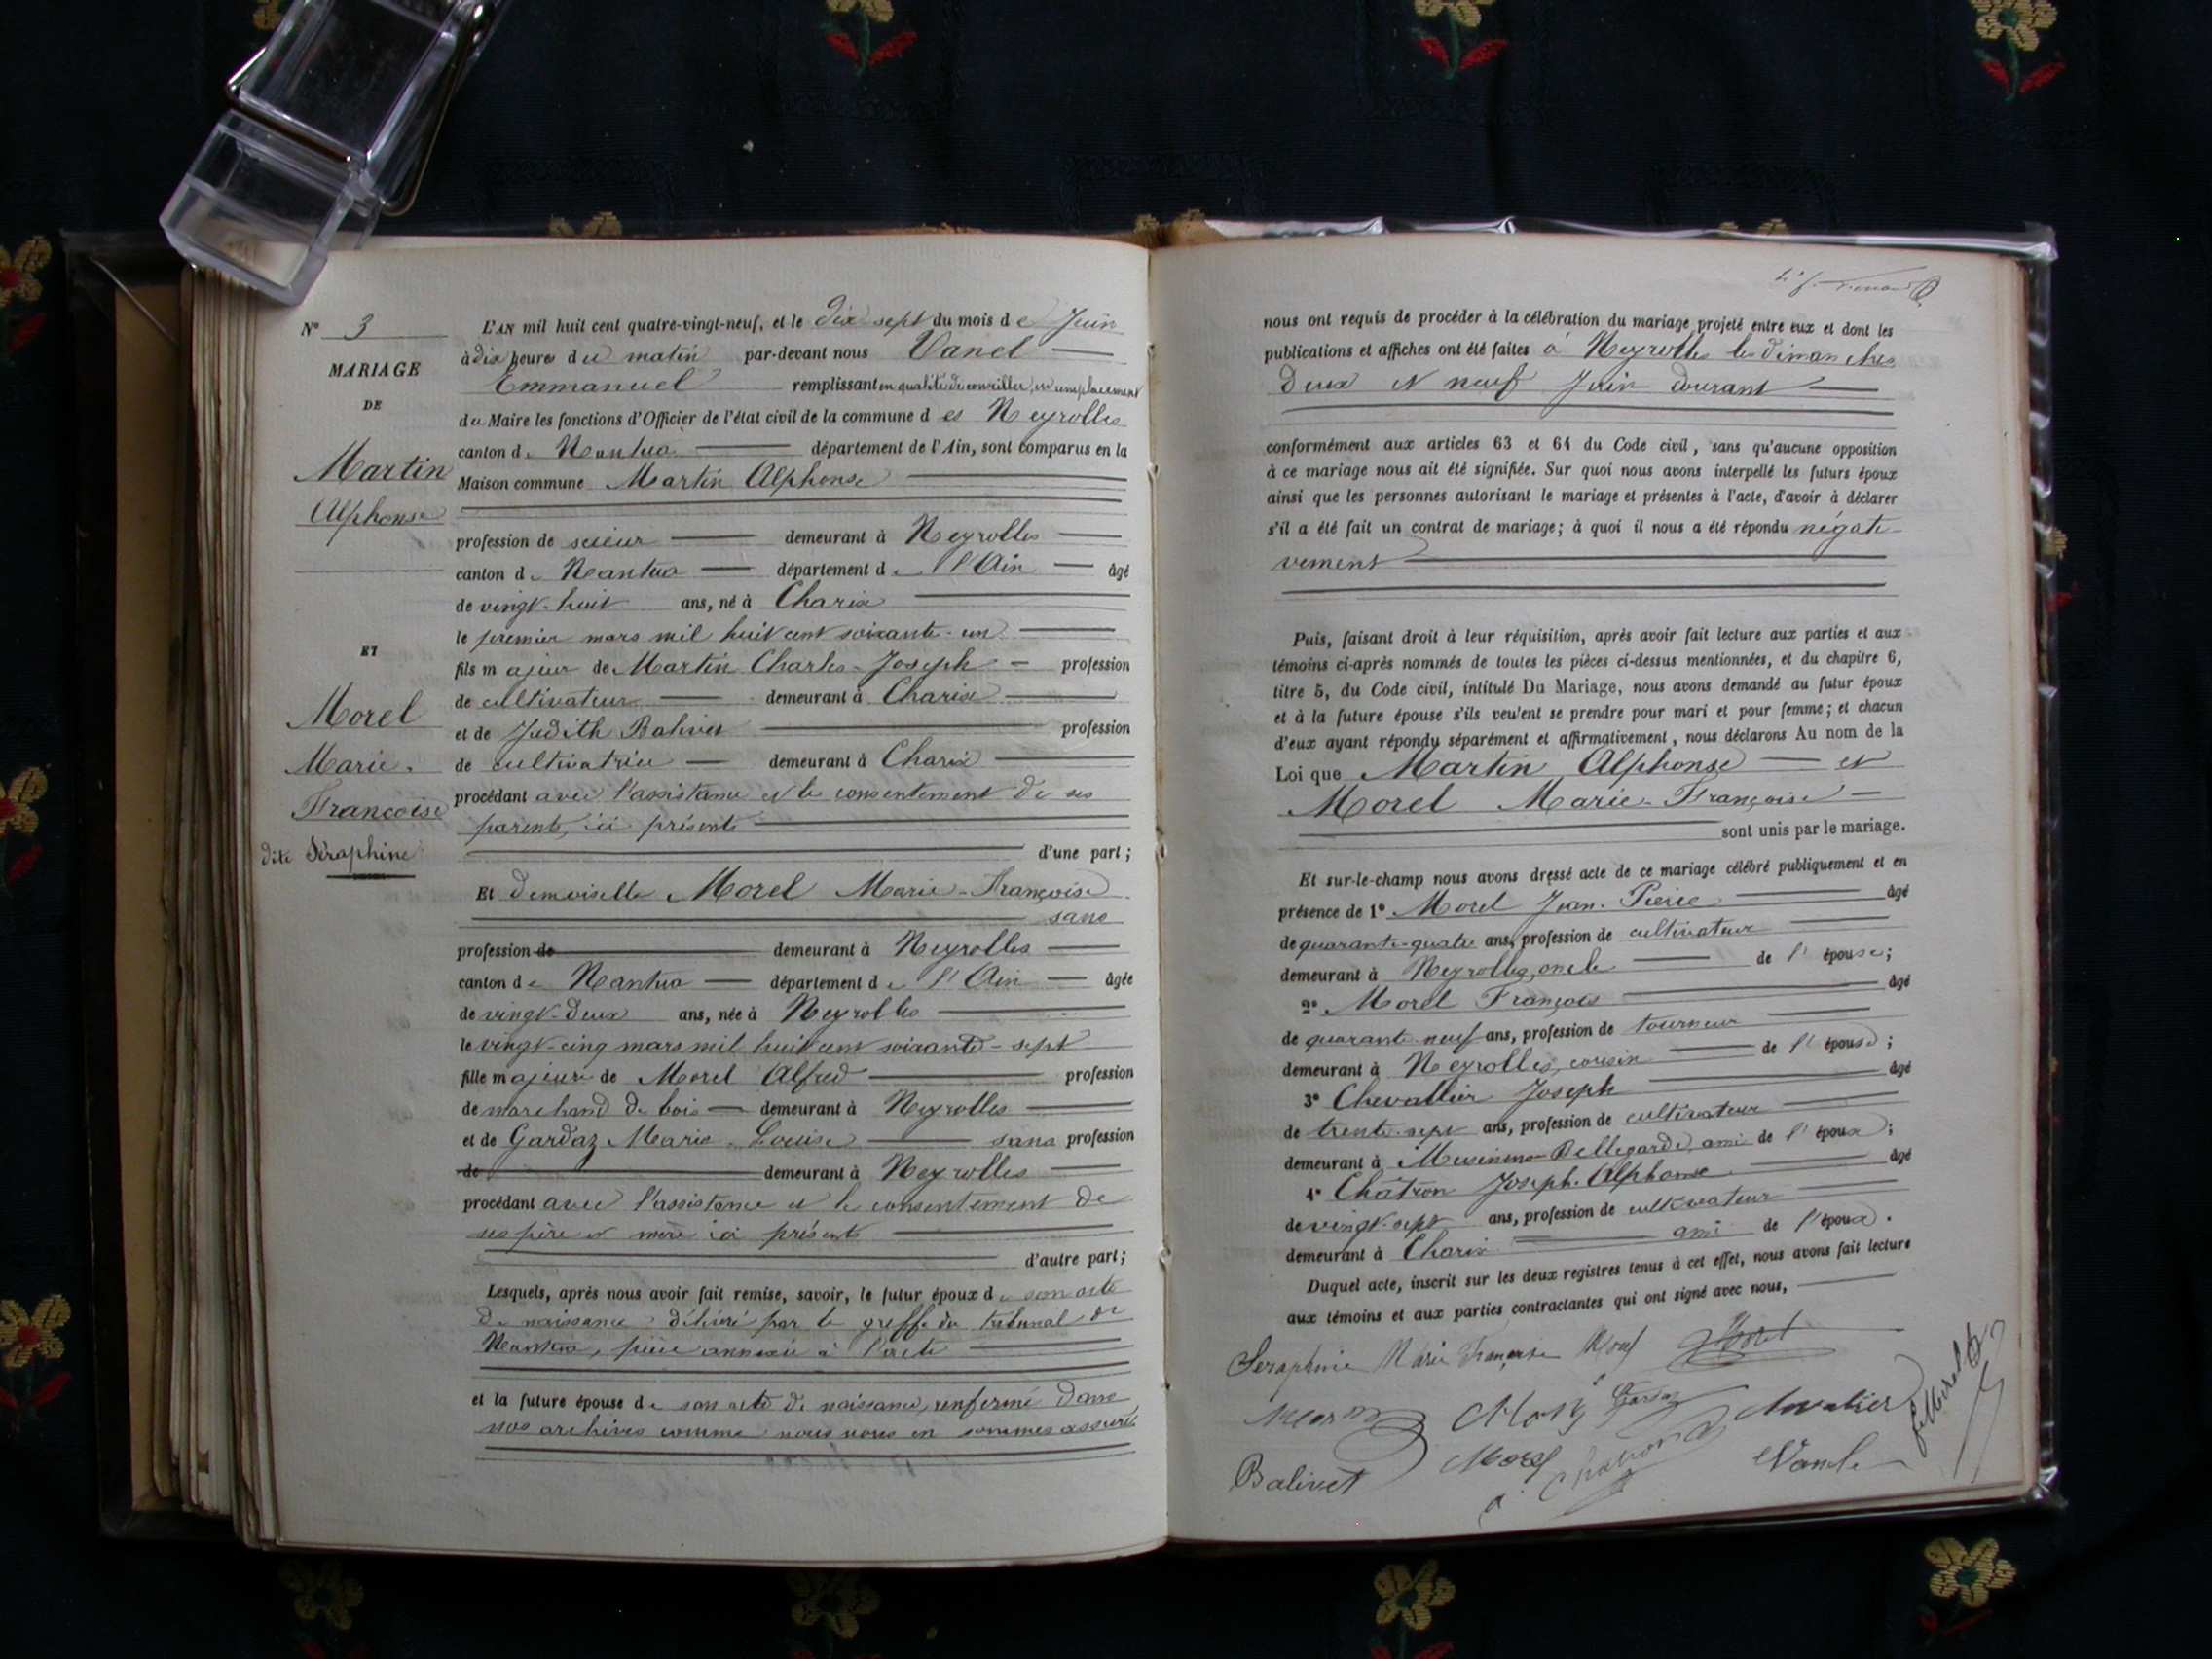 N° 3
MARIAGE
DE
Martin
Alphonse
ET
Morel
Marie-
Françoise
dite Séraphine
L'AN mil huit cent quatre-vingt-neuf, et le dix sept du mois de Juin
à dix heures du matin par-devant nous Vanel
Emmanuel remplissant en qualité de conseiller, en remplacement
du Maire les fonctions d'Officier de l'état civil de la commune des Neyrolles
canton de Nantua département de l'Ain, sont comparus en la
Maison commune Martin Alphonse
profession de scieur demeurant à Neyrolles
canton de Nantua département de l'Ain âgé
de vingt-huit ans, né à Charix
le premier mars mil huit cent soixante-un
fils majeur de Martin Charles-Joseph profession
de cultivateur demeurant à Charix
et de Judith Balivet profession
de cultivatrice demeurant à Charix
procédant avec l'assistance et le consentement de ses
parents, ici présents
d'une part;
Et demoiselle Morel Marie-Françoise
sans
profession de demeurant à Neyrolles
canton de Nantua département de l'Ain âgée
de vingt-deux ans, née à Neyrolles
le vingt-cinq mars mil huit cent soixante-sept
fille majeure de Morel Alfred profession
de marchand de bois demeurant à Neyrolles
et de Gardaz Marie-Louise sans profession
de demeurant à Neyrolles
procédant avec l'assistance et le consentement de
ses père et mère ici présents
d'autre part;
Lesquels, après nous avoir fait remise, savoir, le futur époux de son acte
de naissance délivré par le greffe du tribunal de
Nantua, pièce annexée à l'acte
et la future épouse de son acte de naissance, renfermé dans
nos archives comme nous nous en sommes assuré
nous ont requis de procéder à la célébration du mariage projeté entre eux et dont les
publications et affiches ont été faites à Neyrolles les dimanches
deux et neuf Juin courant
conformément aux articles 63 et 64 du Code civil, sans qu'aucune opposition
à ce mariage nous ait été signifiée. Sur quoi nous avons interpellé les futurs époux
ainsi que les personnes autorisant le mariage et présentes à l'acte, d'avoir à déclarer
s'il a été fait un contrat de mariage; à quoi il nous a été répondu négati-
vement
Puis, faisant droit à leur réquisition, après avoir fait lecture aux parties et aux
témoins ci-après nommés de toutes les pièces ci-dessus mentionnées, et du chapitre 6,
titre 5, du Code civil, intitulé Du Mariage, nous avons demandé au futur époux
et à la future épouse s'ils veulent se prendre pour mari et pour femme; et chacun
d'eux ayant répondu séparément et affirmativement, nous déclarons Au nom de la
Loi que Martin Alphonse et
Morel Marie-Françoise
sont unis par le mariage.
Et sur-le-champ nous avons dressé acte de ce mariage célébré publiquement et en
présence de 1° Morel Jean-Pierre âgé
de quarante-quatre ans, profession de cultivateur
demeurant à Neyrolles, oncle de l'épouse;
2° Morel François âgé
de quarante-neuf ans, profession de tourneur
demeurant à Neyrolles, cousin de l'épouse;
3° Chevallier Joseph âgé
de trente-sept ans, profession de cultivateur
demeurant à Musinens-Bellegarde, ami de l'époux;
4° Châtron Joseph-Alphonse âgé
de vingt-sept ans, profession de cultivateur
demeurant à Charix ami de l'époux.
Duquel acte, inscrit sur les deux registres tenus à cet effet, nous avons fait lecture
aux témoins et aux parties contractantes qui ont signé avec nous,
Seraphine Marie Françoise Morel
Gardaz
Chevalier
Morel
Balivet